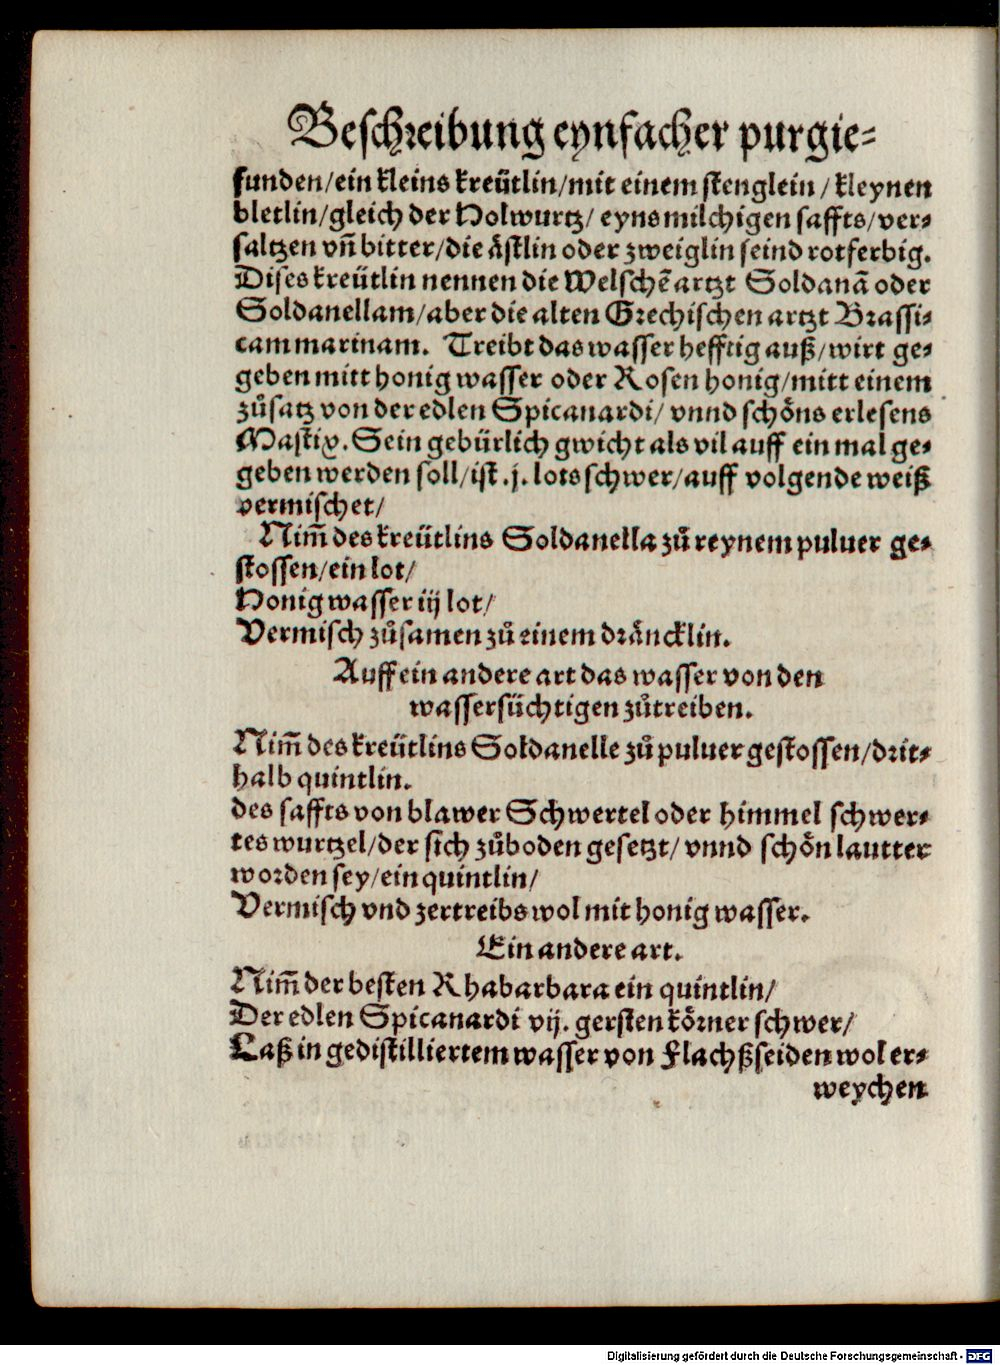 Beschreibung eynfacher purgie-
funden/ein kleins kreütlin/mit einem stenglein/kleynen
bletlin/gleich der Holwurtz/ eyns milchigen saffts/ver-
saltzen vñ bitter/die ästlin oder zweiglin seind rotferbig.
Dises kreütlin nennen die Welschẽ artzt Soldanã oder
Soldanellam/aber die alten Grechischen artzt Brassi-
cam marinam. Treibt das wasser hefftig auß/wirt ge-
geben mitt honig wasser oder Rosen honig/mitt einem
zůsatz von der edlen Spicanardi/ vnnd schöns erlesens
Mastix. Sein gebürlich gwicht als vil auff ein mal ge-
geben werden soll/ist .j. lots schwer/auff volgende weiß
vermischet/
Nim̃ des kreütlins Soldanella zů reynem puluer ge-
stossen/ein lot/
Honig wasser iij lot/
Vermisch zůsamen zů einem dräncklin.
Auff ein andere art das wasser von den
wassersüchtigen zůtreiben.
Nim̃ des kreütlins Soldanelle zů puluer gestossen/drit-
halb quintlin.
des saffts von blawer Schwertel oder himmel schwer-
tes wurtzel/der sich zůboden gesetzt/ vnnd schön lautter
worden sey/ein quintlin/
Vermisch vnd zertreibs wol mit honig wasser.
Ein andere art.
Nim̃ der besten Rhabarbara ein quintlin/
Der edlen Spicanardi vij. gersten körner schwer/
Laß in gedistilliertem wasser von Flachßseiden wol er-
weychen
Digitalisierung gefördert durch die Deutsche Forschungsgemeinschaft - DFG